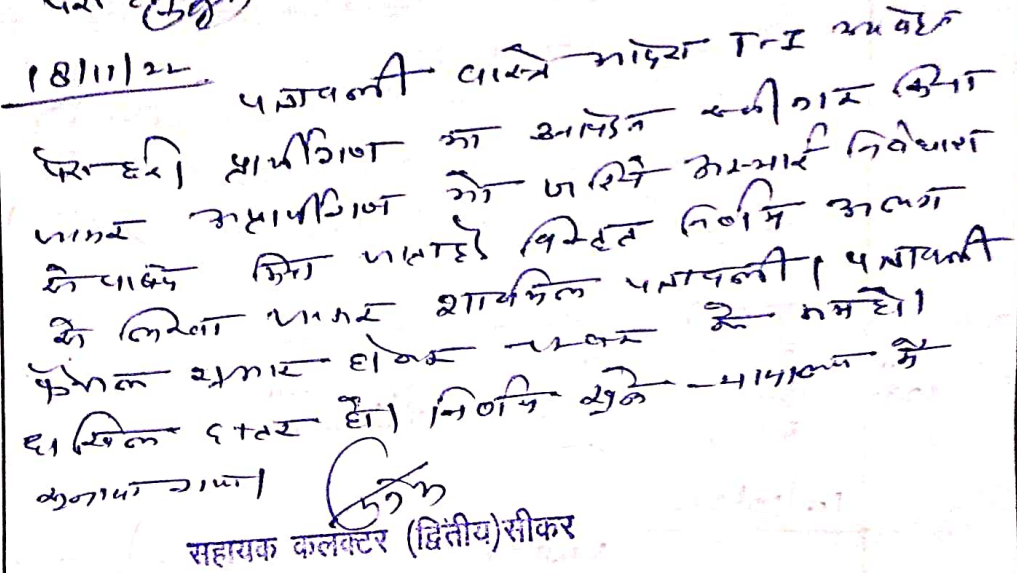 पेश
18/11/22
पत्रावली वास्ते आदेश T-I आवेदन
पेश हुई। प्रार्थीगण का आवेदन स्वीकार किया
जाकर अप्रार्थीगण को जरिये अस्थाई निषेधाज्ञा
से पाबन्द किया जाता है। विस्तृत निर्णय अलग
से लिखा जाकर शामिल पत्रावली। पत्रावली
फैसल शुमार होकर नम्बर से कम हो।
दाखिल दफ्तर हो। निर्णय खुले न्यायालय में
सुनाया गया।
सहायक कलक्टर (द्वितीय) सीकर